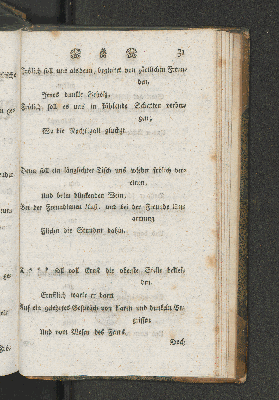 31
Frölich soll uns alsdenn, begleitet von zärtlichen Freun-
den,
Jenes dunkle
Frölich, soll es uns in kühlende Schatten verber-
gen,
Wo die Nachtigall gluckzt.
Denn soll ein länglichter Tisch uns wieder frölich ver-
einen,
Und beim blinkenden Wein,
Bei der Freundinnen Kuß, und bei der Freunde Um-
armung
Fliehn die Stunden dahin.
soll voll Ernst die oberste Stelle beklei-
den,
Ernstlich warte er dann
Auf ein gelehrtes Gespräch von Karten und dunkeln Be-
griffen
Und vom Wesen des
Hoch